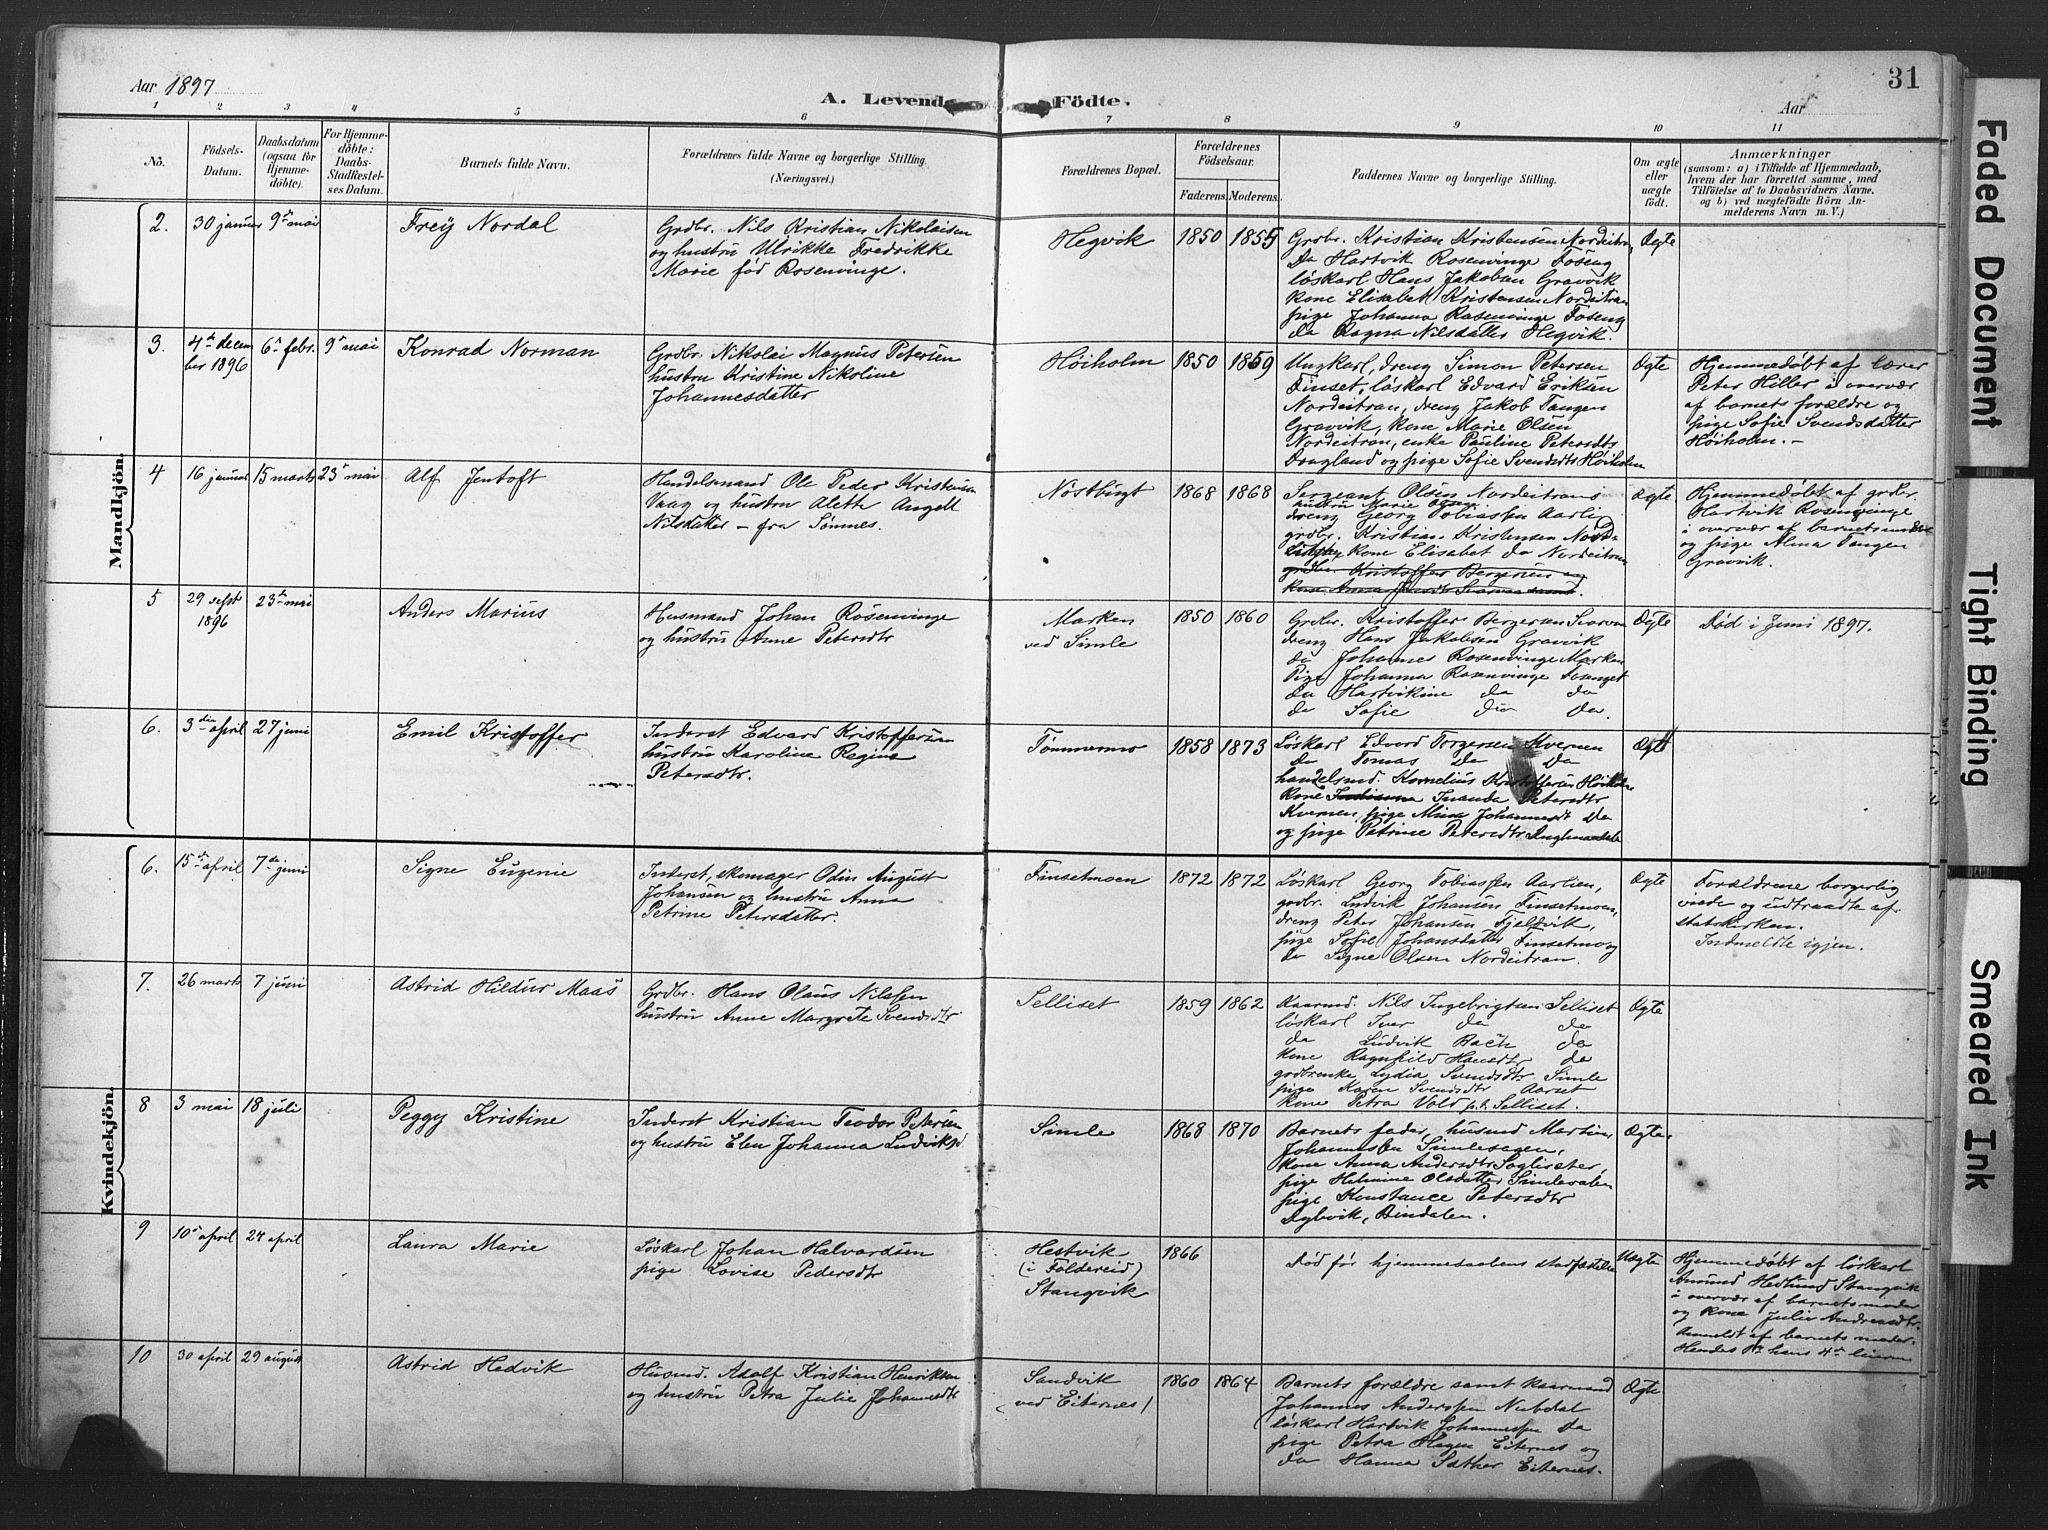 Aar 1897
A. Levende Födte.
Aar
31
1 2 3 4 5 6 7 8 9 10 11
No.
Födsels-
Datum.
Daabsdatum
(ogsaa for
Hjemme-
döbte).
For Hjemme-
döbte:
Daabs-
Stadfæstel-
ses Datum.
Barnets fulde Navn.
Forældrenes fulde Navne og borgerlige Stilling.
(Næringsvei.)
Forældrenes Bopæl.
Forældrenes
Födselsaar.
Faderens. Moderens.
Faddernes Navne og borgerlige Stilling.
Om ægte
eller
uægte
födt.
Anmærkninger
(saasom: a) i Tilfælde af Hjemmedaab,
hvem der har forrettet samme, med
Tilföielse af to Daabsvidners Navne.
og b) ved uægtefödte Börn An-
melderens Navn m. V.)
Mandkjön.
2. 30 januar 9de mai
Frey Nordal
Grdbr. Nils Kristian Nikolaisen
og hustru Ulrikke Fredrikke
Marie fød Rosenvinge.
Hegvik
1850 1855
Grdbr. Kristian Kristensen Nordeitran,
Do Hartvik Rosenvinge Foseng
løskarl Hans Jakobsen Gravvik
kone Elisabet Kristensen Nordeitran
pige Johanna Rosenvinge Foseng
do Ragna Nilsdatter Hegvik.
Ægte
3. 4de decem
ber 1896
6te febr. 9de mai
Konrad Norman
Grdbr. Nikolai Magnus Petersen
hustru Kristine Nikoline
Johannesdatter
Høiholm
1850 1859
Ungkarl, dreng Simon Petersen
Finset, løskarl Edvard Eriksen
Nordeitran, dreng Jakob Tangen
Gravvik, kone Marie Olsen
Nordeitran, enke Pauline Petersdtr
Dragland og pige Sofie Svendsdtr Høiholm
Ægte
Hjemmedøbt af lærer
Peter Hiller i overvær
af barnets forældre og
pige Sofie Svendsdatter
Høiholm. -
4 16 januar 15 marts 23de mai
Alf Jentoft
Handelsmand Ole Peder Kristensen
Vaag og hustru Alette Angell
Nilsdatter - fra Sømnes.
Nøstbugt
1868 1868
Sergeant Olsen Nordeitrans
hustru Marie Olsen
dreng Georg Tobiassen Aarli
grdbr. Kristian Kristensen Nord-
kone Elisabet do Nordeitran
grdbr. Kristoffer Bergersen og
kone Anna
Ægte
Hjemmedøbt af grdbr.
Hartvik Rosenvinge
i overvær af barnets moder
og pige Alma Tangen
Gravvik.
5 29 sept
1896
23de mai
Anders Marius
Husmand Johan Rosenvinge
og hustru Anne Petersdtr
Marken
ved Simle
1850 1860
Grdbr. Kristoffer Bergersen
dreng Hans Jakobsen Gravvik
do Johannes Rosenvinge Marken
Pige Johanna Rosenvinge
do Hartvikine do do
do Sofie do do.
Ægte
Død i Juni 1897.
6. 3die april 27 juni
Emil Kristoffer
Inderst Edvard Kristoffersen
hustru Karoline Regine
Petersdtr.
Tømmermo
1858 1873
Løskarl Edvard Torgersen Kvernen
Do Tomas Do Do
handelsmd. Kornelius Kristoffersen Høiholm
kone Inanda Petersdtr
Kvernen, pige Mina Johannesdt Do
og pige Petrine Petersdtr
Ægte
Kvindekjön.
6. 15de april 7de juni
Signe Eugenie
Inderst, skomager Odin August
Johansen og hustru Anna
Petrine Petersdatter.
Finsetmoen
1872 1872
Løskarl Georg Tobiassen Aarlien,
grdbr. Ludvik Johansen Finsetmoen,
dreng Peter Johansen Fjeldvik,
pige Sofie Johansdatter Finsetmo og
do Signe Olsen Nordeitran.
Ægte
Forældrene borgerlig
viede og udtraadte af
statskirken.
Indmeldte igjen.
7. 26 marts 7 juni
Astrid Hildur Maas
Grdbr. Hans Olaus Nilssen
hustru Anne Margrete Svendsdtr
Selliset
1859 1862
Kaarmd. Nils Ingebrigtsen Selliset
løskarl Iver do do
da Ludvik Bach do
kone Ragnhild Hansdtr do
grdbr.enke Lydia Svendsdtr Simle
pige Karen Svendsdtr Aarset
kone Petra Vold p.t. Selliset.
Ægte
8 3 mai 18 juli
Peggy Kristine
Inderst Kristian Teodor Petersen
og hustru Elen Johanna Ludviksd
Simle
1868 1870
Barnets fader, husmd Martin
Johannessen Simlesagen,
kone Anna Andersdtr Sagliseter,
pige Helmine Olsdatter Simlevalen
pige Konstance Petersdtr
Dybvik, Bindalen.
Ægte
9 10de april 24 april
Laura Marie
Løskarl Johan Halvardsen
pige Lovise Pedersdtr
Hestvik
(i Foldereid)
Stangvik
1866
Død før hjemmedaabens stadfæstelse
Uægte
Hjemmedøbt af løskarl
Amund Hedlund Stangvik
i overvær af barnets moder
og kone Julie Andreasdtr.
Anmeldt af barnets moder.
Hendes 1te hans 4de leierm
10 30 april 29 august
Astrid Hedvik
Husmd. Adolf Kristian Henriksen
og hustru Petra Julie Johannesdtr
Sandvik
(ved Eiternes)
1860 1864
Barnets forældre samt kaarmand
Johannes Anderssen Nubdal
løskarl Hartvik Johannessen Do
pige Petra Hagen Eiternes og
do Hanna Sæther Eiternes.
Ægte
Faded Document
Tight Binding
Smeared Ink